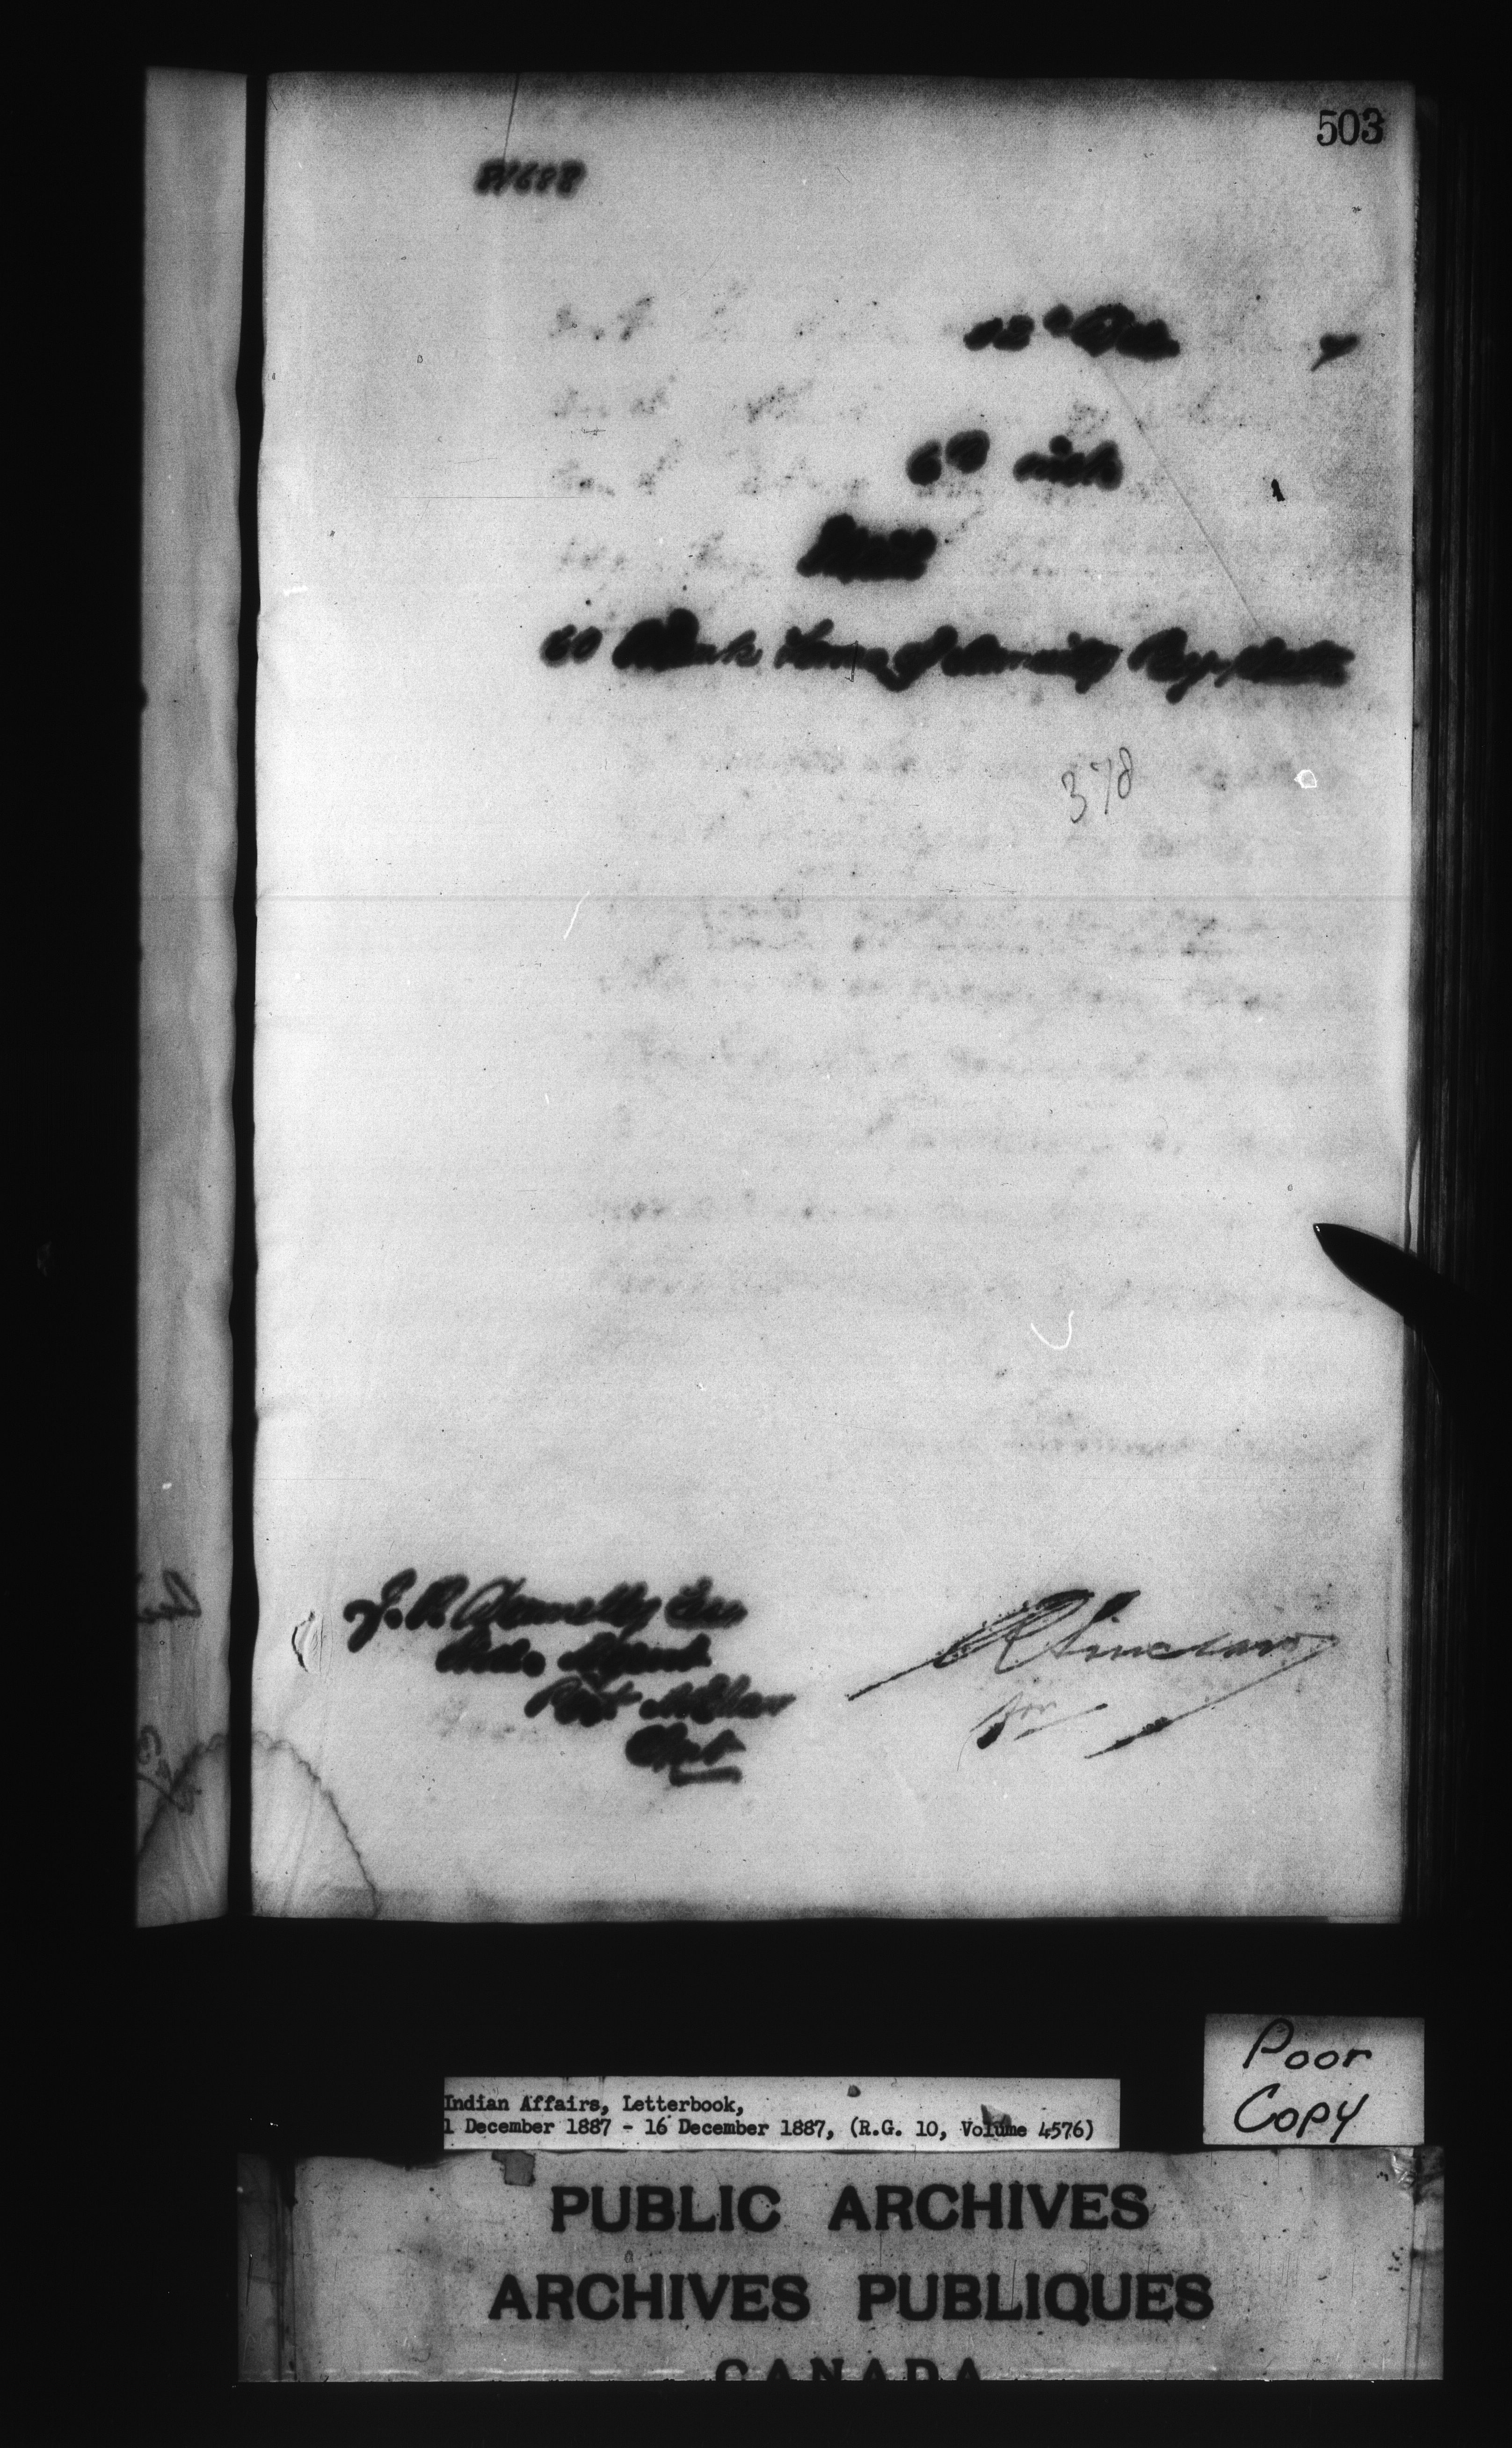 503
81688
12th Dec 7
6th inst
60 Blank Forms of Annuity Pay-sheets
378
J. P. Donnelly Esq
Ind. Agent
Port Arthur
Ont
R Sinclair
for
Poor
Copy
Indian Affairs, Letterbook,
1 December 1887 - 16 December 1887, (R.G. 10, Volume 4576)
PUBLIC ARCHIVES
ARCHIVES PUBLIQUES
CANADA